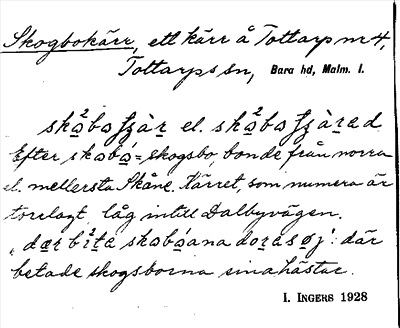 Skogbokärr, ett kärr å Tottarp nr 4,
Tottarps sn, Bara hd, Malm. l.
el.
Efter skoba = skogsbo, bonde från norra
el. mellersta Skåne. Kärret, som numera är
torrlagt, låg intill Dalbyvägen.
där
betade skogsborna sina hästar.
I. INGERS 1928